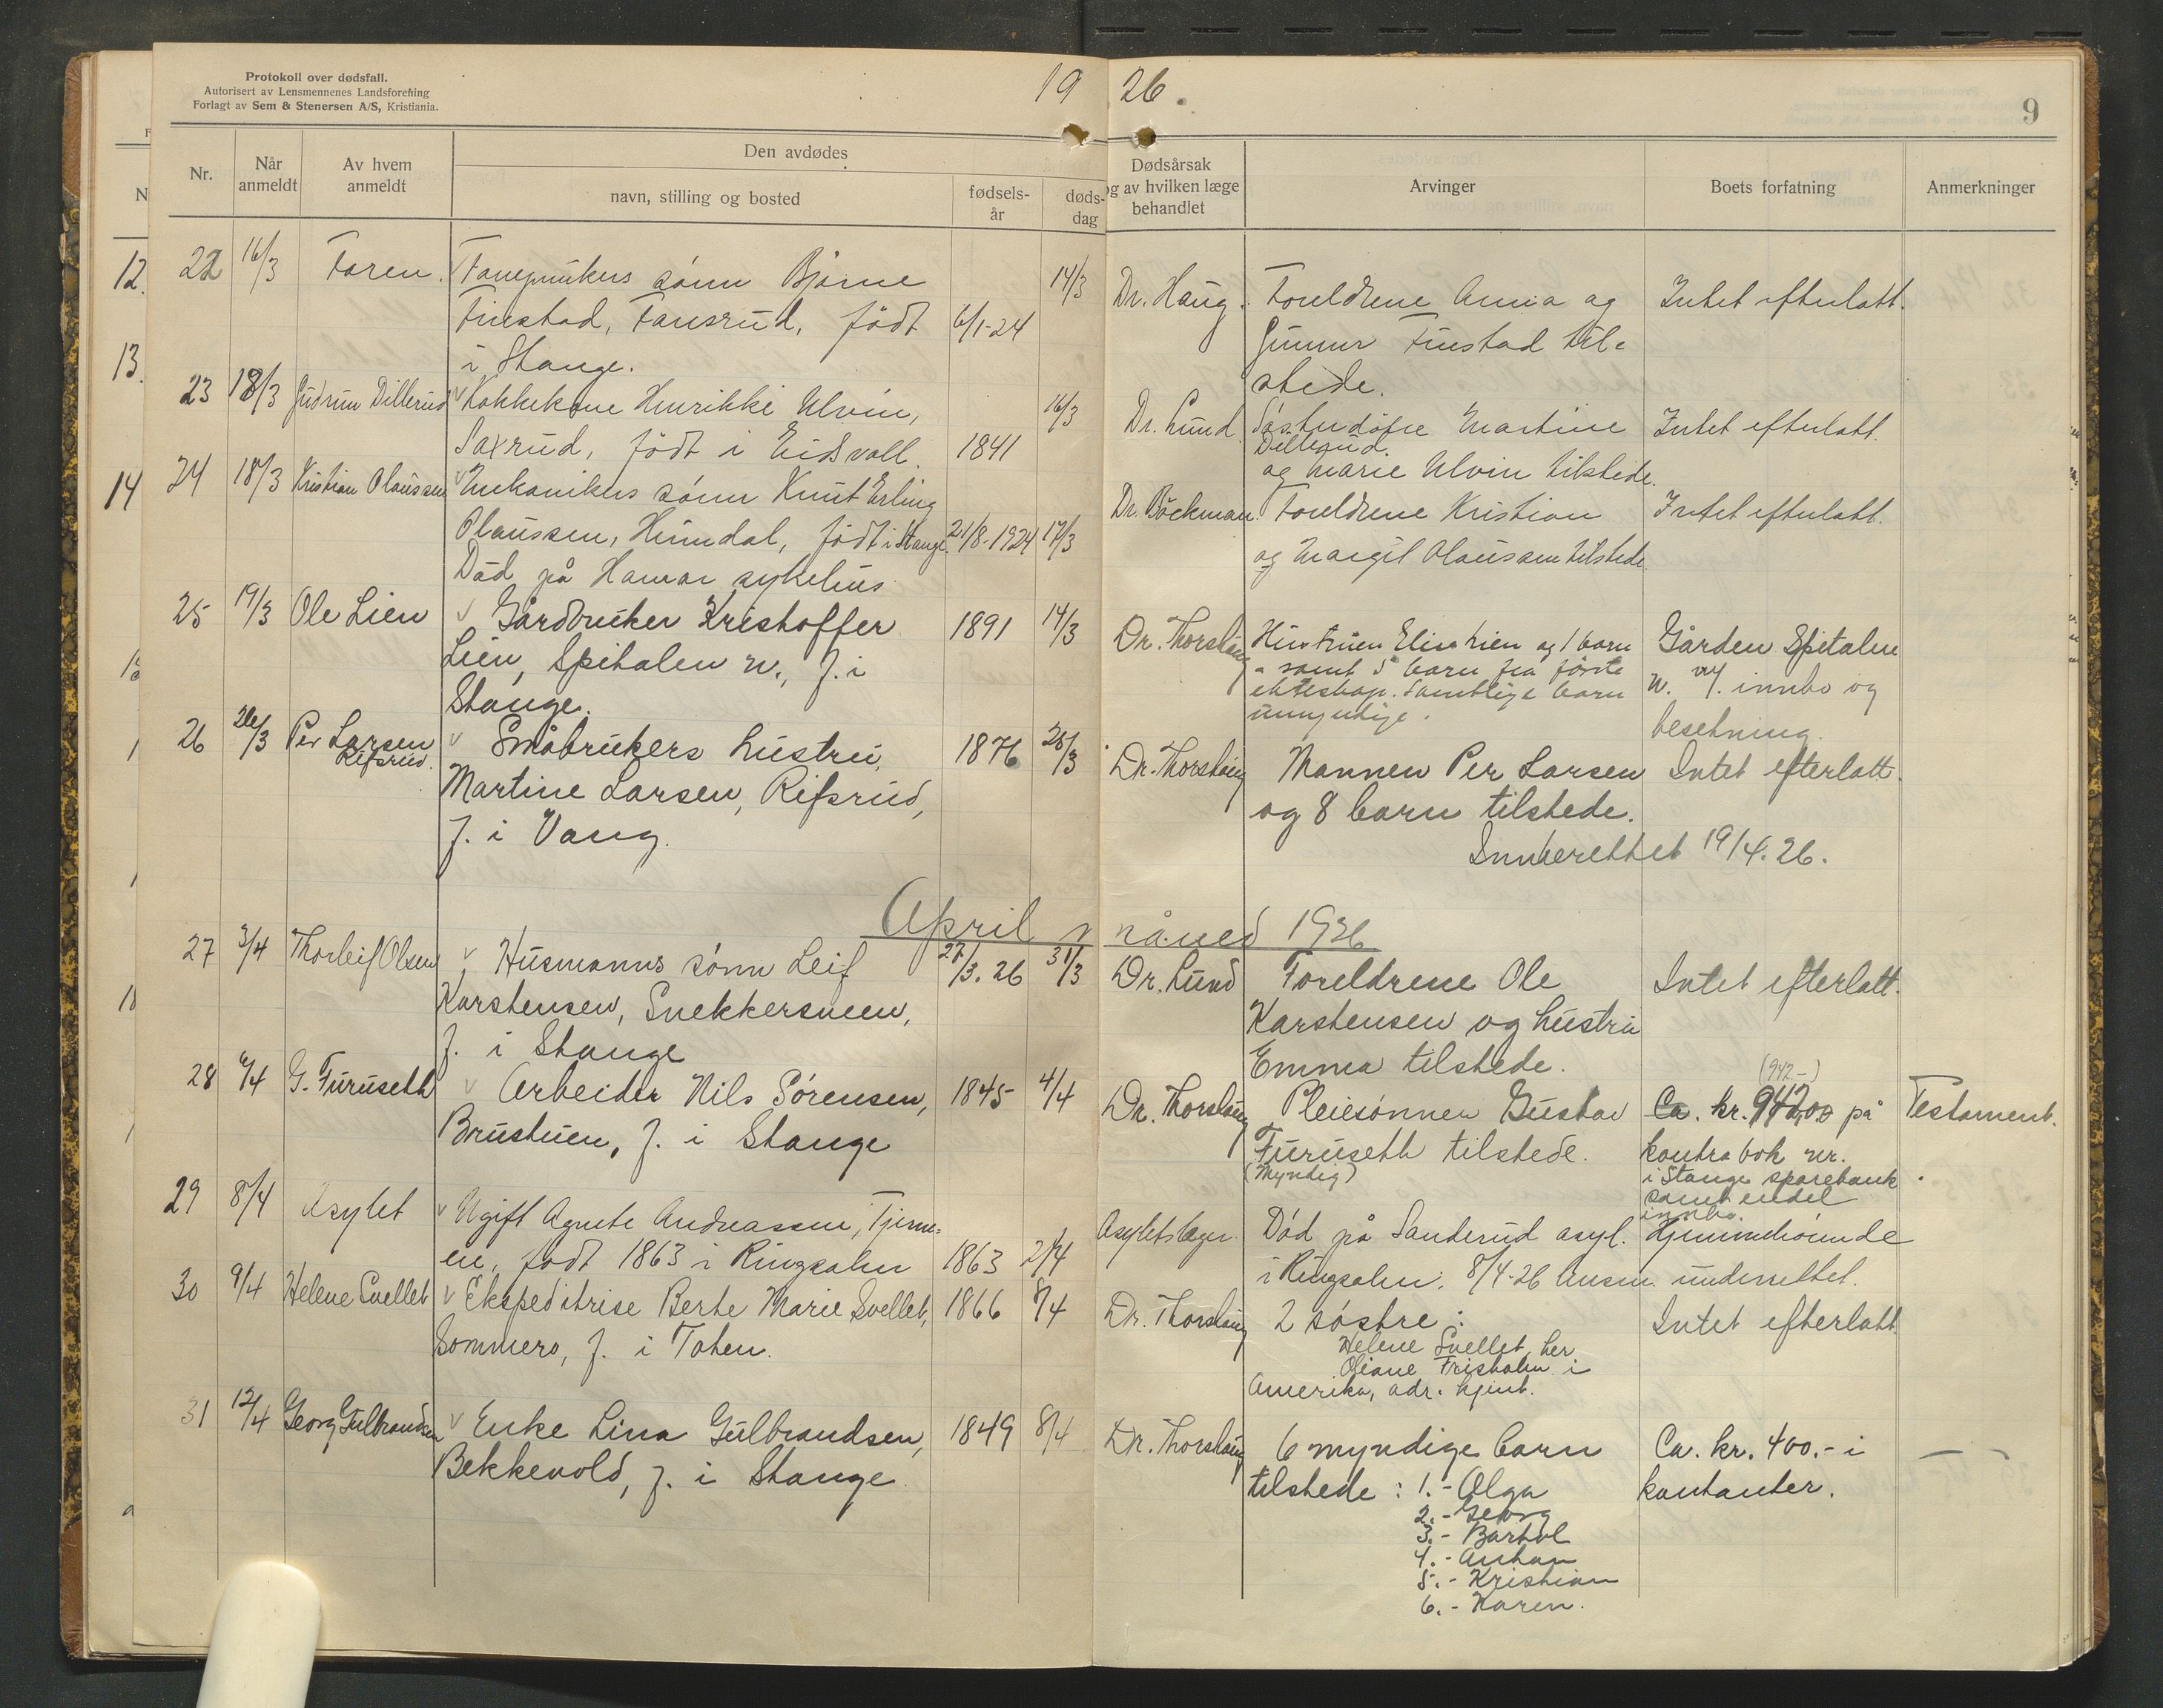 Protokoll over dødsfall.
Autorisert av Lensmennenes Landsforening
Forlagt av Sem & Stenersen A/S, Kristiania.
19 26.
9
Nr.
Når anmeldt
Av hvem anmeldt
Den avdødes
navn, stilling og bosted
fødsels-år
døds-dag
Dødsårsak
og av hvilken læge
behandlet
Arvinger
Boets forfatning
Anmerkninger
12.
13.
14
22 16/3 Faren. Bjarne 14/3 Dr. Haug. Foreldrene Anna og Intet efterlatt.
Finstad, født 6/1-24 Gunnar Finstad til-
i Stange. stede.
23 18/3 Gudrun Dillerud Kokkekone Henrikke Ulvin, 16/3 Dr. Lund Søsterdøtre Martine Intet efterlatt.
Dillerud.
Saxrud, født i Eidsvoll. 1841 og Marie Ulvin tilstede.
24 18/3 Kristian Olaussen Mekanikers sønn Knut Erling Dr. Böckman. Foreldrene Kristian Intet efterlatt.
Olaussen, født i Stange. 21/8-1924 17/3 og Margit Olaussen tilstede
Død på Hamar sykehus
25 19/3 Ole Lien Gårdbruker Kristoffer 1891 14/3 Dr. Thorshaug Hustruen Elise Lien og 1 barn Gården Spitalen
Lien, Spitalen n., f. i - samt 5 barn fra første n. m/. innbo og
Stange. ekteskap. Samtlige barn besetning.
umyndige.
26 26/3 Per Larsen Småbrukers hustru, 1876 26/3 Dr. Thorshaug Mannen Per Larsen Intet efterlatt.
Rifsrud.
Martine Larsen, Rifsrud, og 8 barn tilstede.
f. i Vang.
Innberettet 19/4. 26.
April måned 1926
27 3/4 Thorleif Olsen Husmanns sønn Leif 27/3. 26 31/3 Dr. Lund Foreldrene Ole Intet efterlatt.
Karstensen, Snekkersveen, Karstensen og hustru
f. i Stange Emma tilstede.
(942.-)
28 6/4 G. Furuseth Arbeider Nils Sørensen, 1845 4/4 Dr. Thorshaug Pleiesønnen Gustav Ca. kr. 942,00 på Testament.
Brustuen, f. i Stange Furuseth tilstede. kontrabok nr.
(Myndig) i Stange sparebank
samt endel
innbo.
29 8/4 Asylet Ugift Agnete Andreassen, Asylets læger. Død på Sanderud asyl. Hjemmehørende
født 1863 i Ringsaker 1863 2/4 i Ringsaker. 8/4-26 underrettet.
30 9/4 Helene Svellet Ekspeditrise Berte Marie Svellet, 1866 8/4 Dr. Thorshaug 2 søstre: Intet efterlatt
Sommero, f. i Toten. Helene Svellet, her
Oliane Frisholm i
Amerika, adr. kjent.
31 12/4 Georg Gulbrandsen Enke Lina Gulbrandsen, 1849 8/4 Dr. Thorshaug 6 myndige barn Ca. kr. 400.- i —
Bekkevold, f. i Stange. tilstede: 1.- Olga kontanter.
2.- Georg
3.- Barhol
4.- Anton
5.- Kristian
6.- Karen.